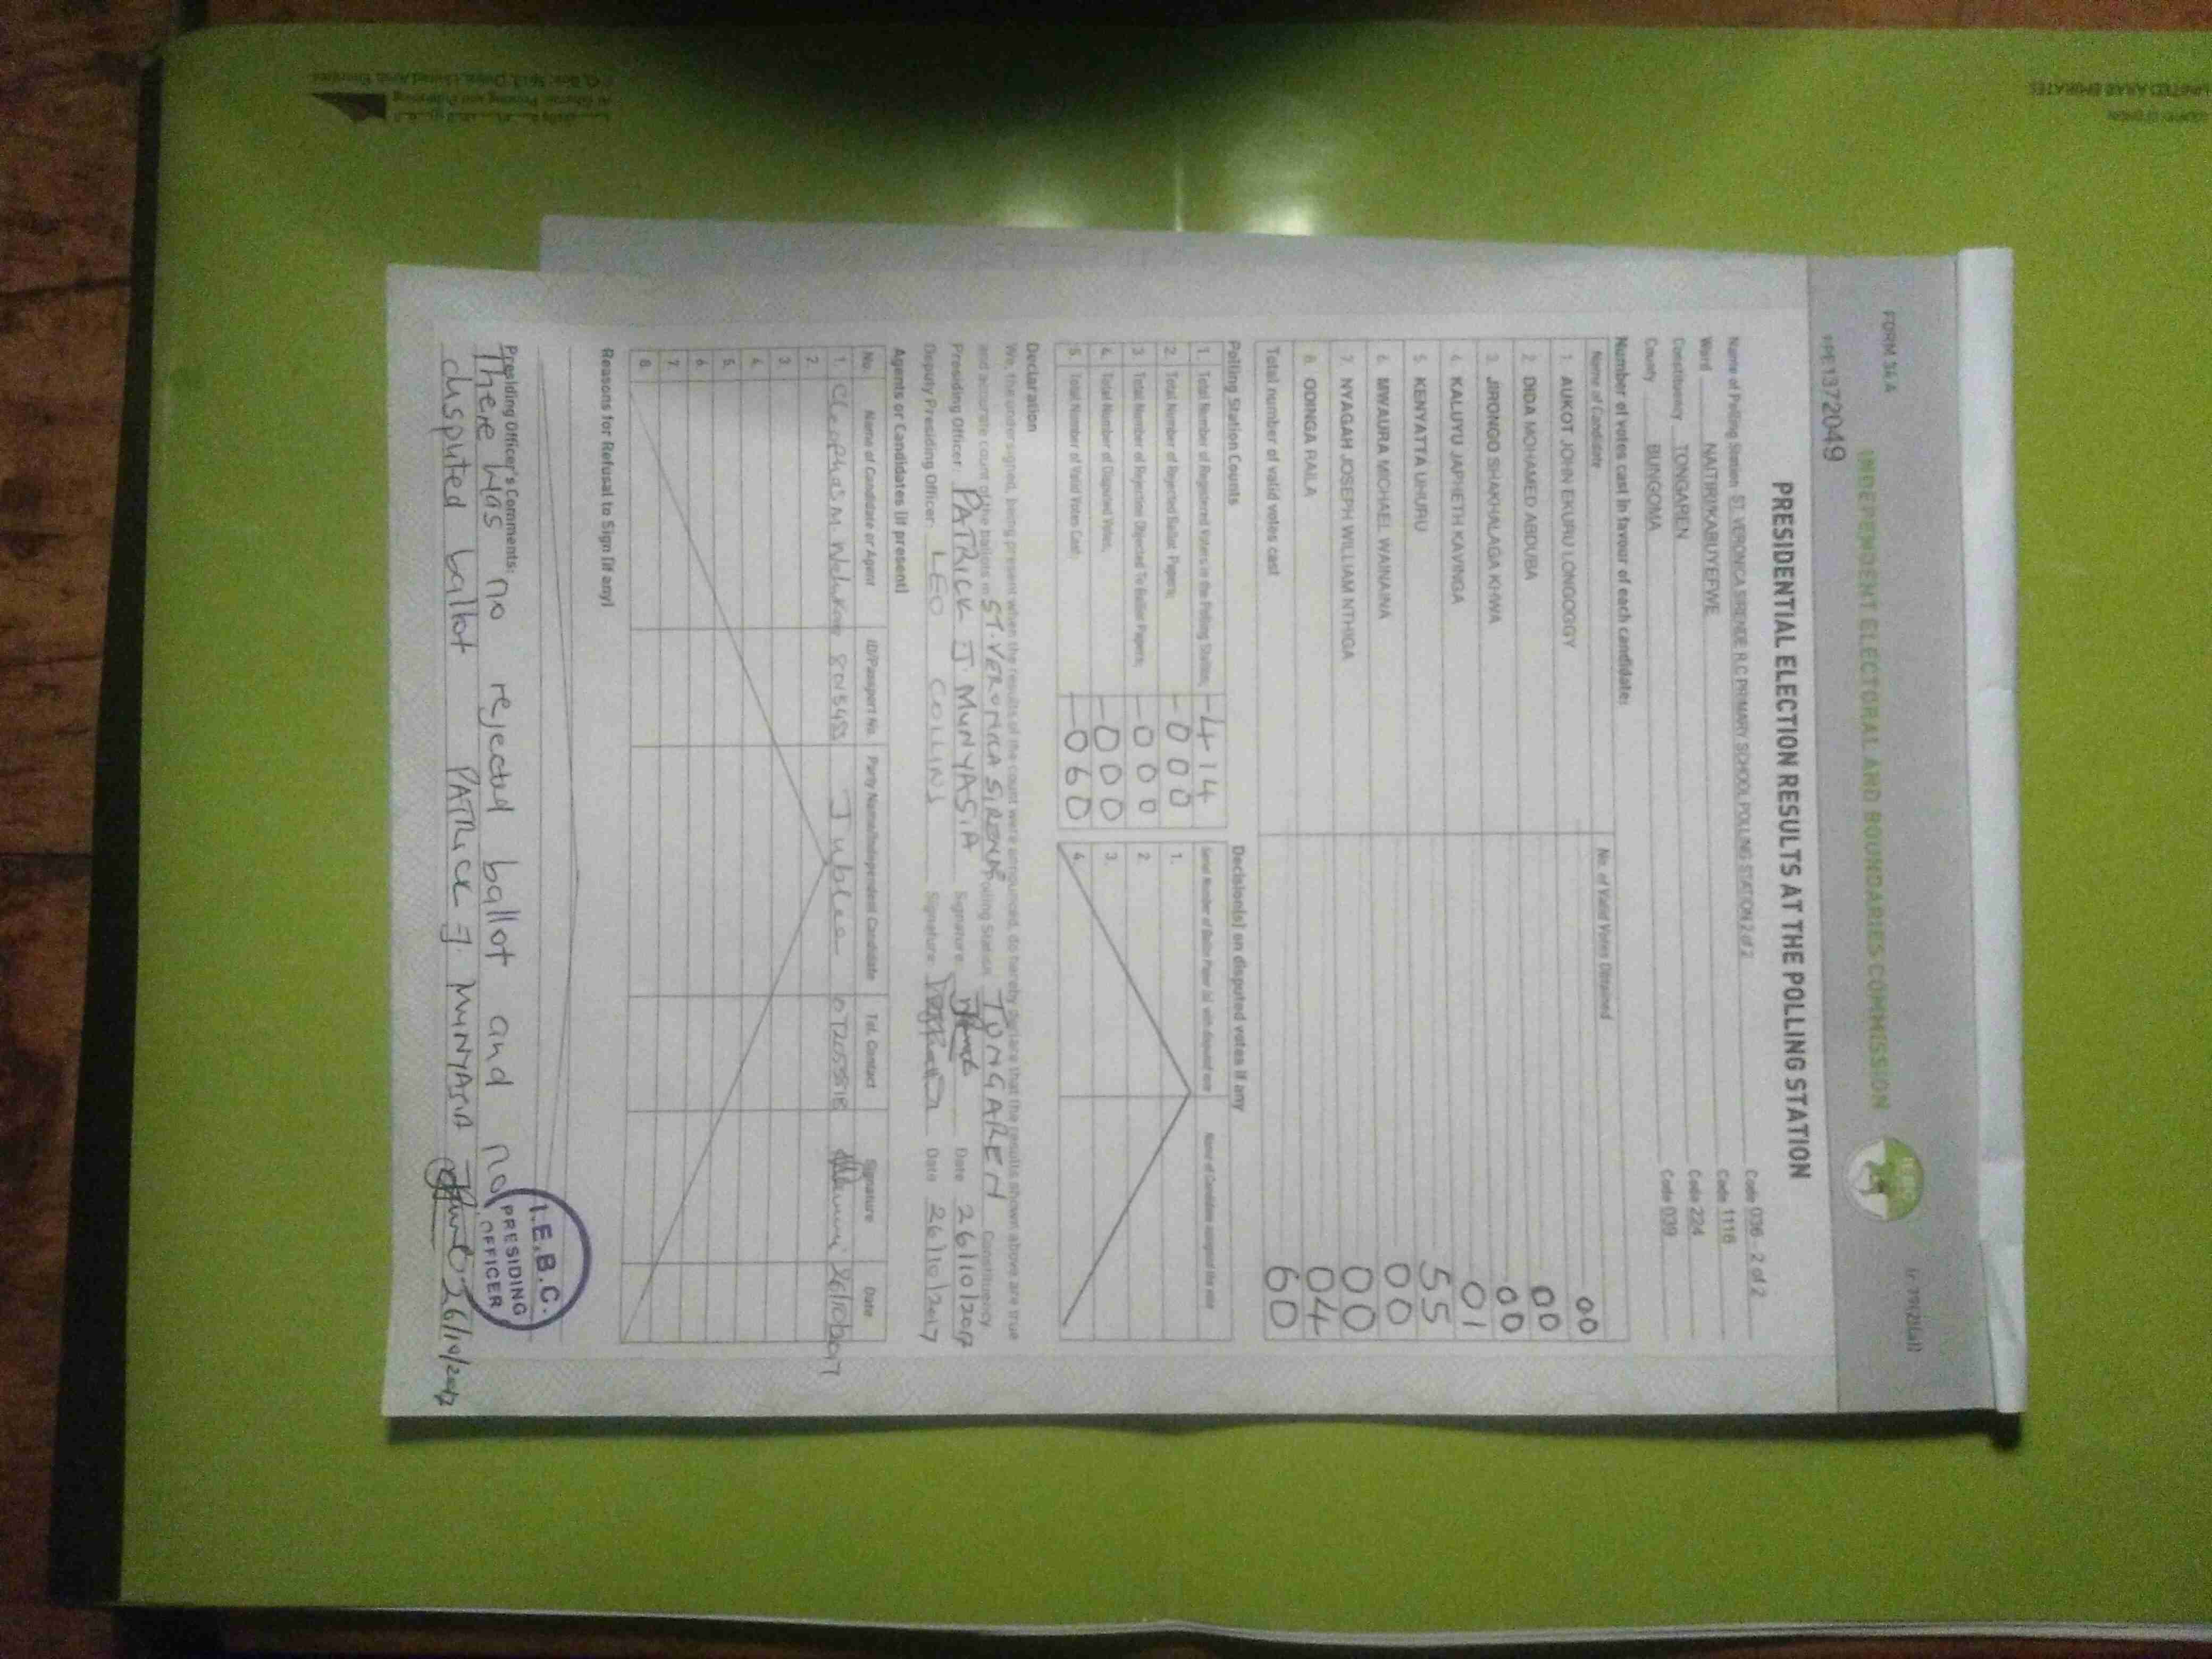 FORM 34 A
INDEPENDENT ELECTORAL AND BOUNDARIES COMMISSION
PRESIDENTIAL ELECTION RESULTS AT THE POLLING STATION
Name of Polling Station ST. VERONICA SIRENDE R.C PRIMARY SCHOOL POLLING STATION 2 of 2 Code 036 - 2 of 2
Ward NAITIRI/KABUYEFWE Code 1116
Constituency TONGAREN Code 224
County BUNGOMA Code 039
Number of votes cast in favour of each candidate:
Name of Candidate No. of Valid Votes Obtained
1. AUKOT JOHN EKURU LONGOGGY 00
2. DIDA MOHAMED ABDUBA 00
3. JIRONGO SHAKHALAGA KHWA 00
4. KALUYU JAPHETH KAVINGA 01
5. KENYATTA UHURU 55
6. MWAURA MICHAEL WAINAINA 00
7. NYAGAH JOSEPH WILLIAM NTHIGA 00
8. ODINGA RAILA 04
Total number of valid votes cast 60
Polling Station Counts
1. Total Number of Registered Voters in the Polling Station; -414
2. Total Number of Rejected Ballot Papers; -000
3. Total Number of Rejection Objected To Ballot Papers; -000
4. Total Number of Disputed Votes; -000
5. Total Number of Valid Votes Cast; -060
Decision(s) on disputed votes if any
1.
2.
3.
4.
Declaration
We, the undersigned, being present when the results of the count were announced, do hereby declare that the results shown above are true
and accurate count of the ballots in ST. VERONICA Polling Station TONGAREN Constituency
Presiding Officer: PATRICK J. MUNYASIA Signature: Date 26/10/2017
Deputy Presiding Officer: LEO COLLINS Signature: Date 26/10/2017
Agents or Candidates (if present)
No. Name of Candidate or Agent ID/Passport No. Party Name/Independent Candidate Tel. Contact Signature Date
1. Cleophas M. Jubilee
2.
3.
4.
5.
6.
7.
8.
Reasons for Refusal to Sign (if any)
Presiding Officer's Comments:
There was no rejected ballot and no
disputed ballot PATRICK J. MUNYASIA 26/10/2017
I.E.B.C.
PRESIDING
OFFICER